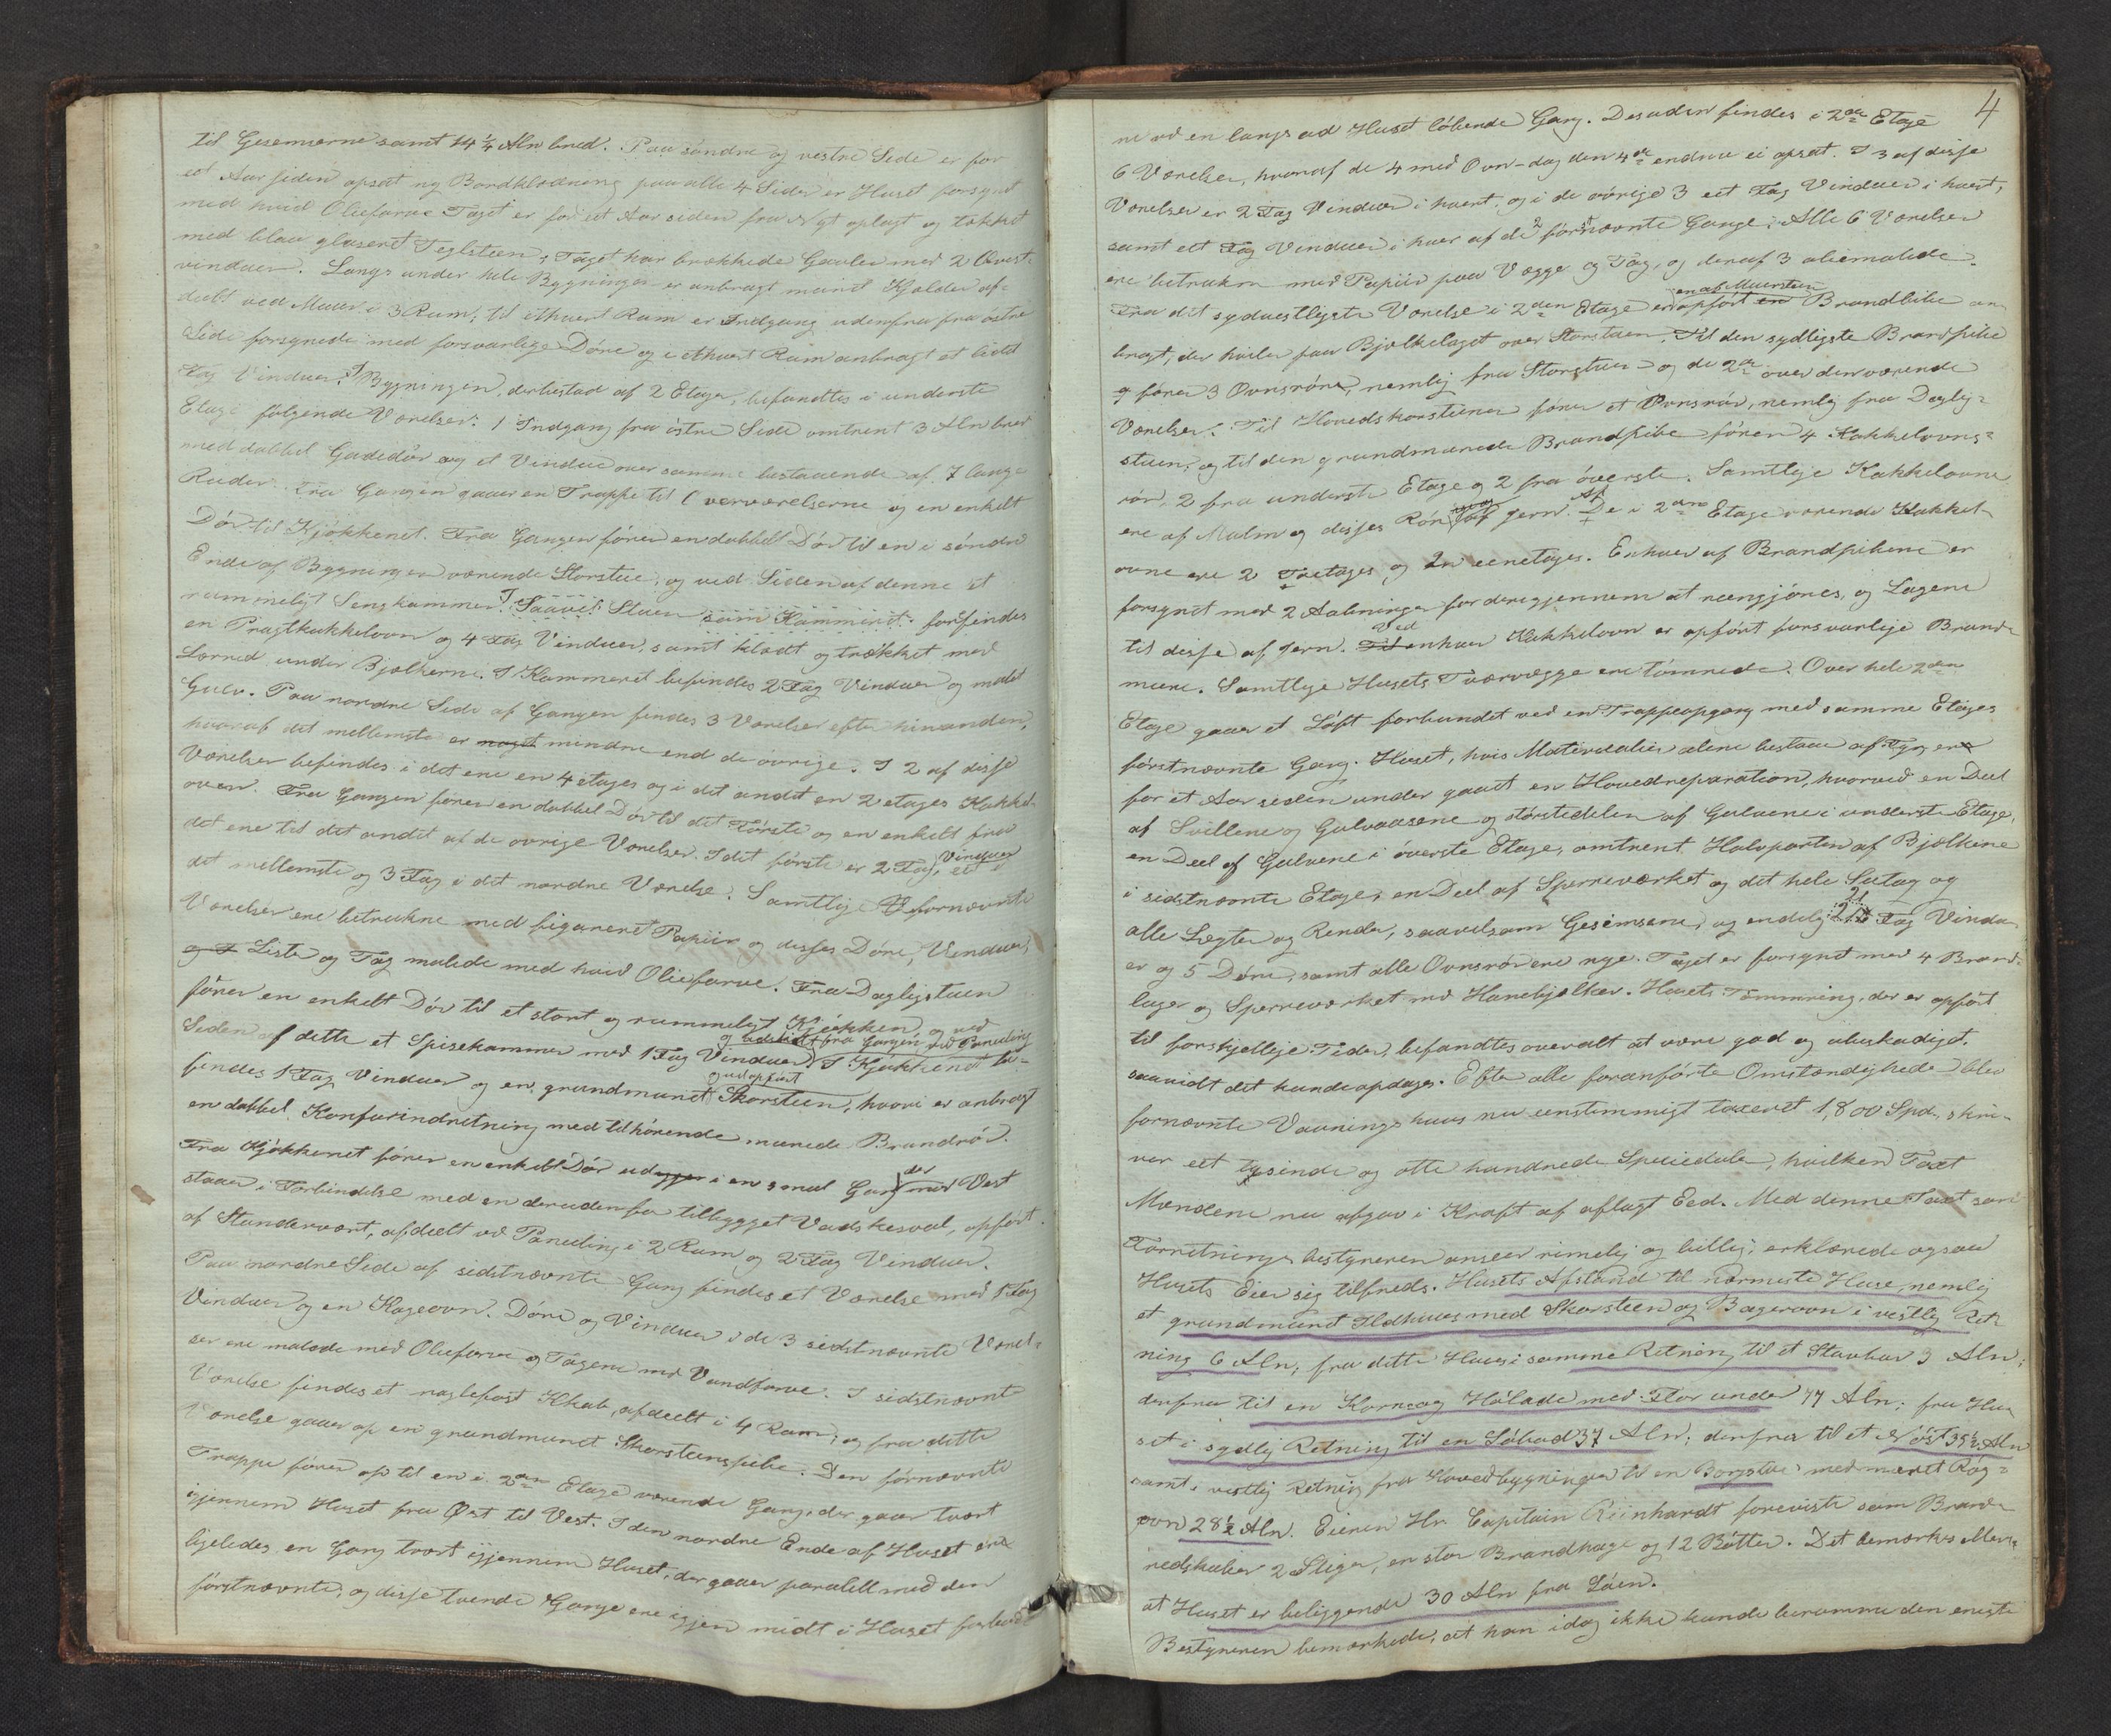 til Gesemserne samt 14 1/4 Aln bred. Paa søndre og vestre Side er for
et Aar siden opsat ny Bordklædning paa alle 4 Sider er Huset forsynet
med hvid Oliefarve Taget er for et Aar siden fra Nyt oplagt og tækket
med blaa glaseret Teglsteen, Taget har brækkede Gavler med 2 Qvist-
vinduer. Langs under hele Bygningen er anbragt muret Kjælder af-
deelt ved Muur i 3 Rum; til ethvert Rum er Indgang udenfra fra østre
Side forsynede med forsvarlige Døre og i ethvert Rum anbragt et lidet
Fag Vinduer. I Bygningen, der bestaar af 2 Etager, befandtes i underste
Etage følgende Værelser: 1 Indgang fra østre Side omtrent 3 Aln bred
med dobbel Gadedør og et Vindue over samme bestaaende af 7 lange
Ruder. Fra Gangen gaaer en Trappe til Overværelserne og en enkelt
Dør til Kjøkkenet. Fra Gangen fører en dobbel Dør til en i søndre
Ende af Bygningen værende Storstue, og ved Siden af denne et
rummeligt Sengkammer. I Saavel Stuen som Kammeret forefindes
en Pragtkakkelovn og 4 Fag Vinduer, samt klædt og trækket med
Lærred under Bjælkerne. I Kammeret befindes 2 Fag Vinduer og malet
Gulv. Paa nordre Side af Gangen findes 3 Værelser efter hinanden,
hvoraf det mellemste er noget mindre end de øvrige. I 2 af disse
Værelser befindes i det ene en 4 etages og i det andet en 2 etages Kakkel-
oven. Fra Gangen fører en dobbel Dør til det Første og en enkelt fra
det ene til det andet af de øvrige Værelser. I det første er 2 Fag Vinduer, et i
det mellemste og 3 Fag i det nordre Værelse. Samtlige fornævnte
Værelser ere betrukne med figureret Papiir og disses Døre, Vinduer,
og Lister og Tag malede med hvid Oliefarve. Fra Dagligstuen
fører en enkelt Dør til et stort og rummeligt Kjøkken, og ved
Siden af dette et Spisekammer med 1 Fag Vinduer og adskildt fra Gangen ved Paneling I Kjøkkenet be-
findes 1 Fag Vinduer og en grundmuret og udopført Skorsteen, hvori er anbragt
en dobbel Komfurindretning med tilhørende murede Brandrør.
Fra Kjøkkenet fører en enkelt Dør ud i en smal Gang der mod Vest
staaer i Forbindelse med en derudenfor tilbygget Vadskesval, opført
af Standerværk, afdeelt ved Paneeling i 2 Rum og 2 Fag Vinduer.
Paa nordre Side af sidstnævnte Gang findes et Værelse med 1 Fag
Vinduer og en Kageovn. Døre og Vinduer i de 3 sidstnævnte Værel-
ser ere malede med Oliefarve og Tagene med Vandfarve. I sidstnævnte
Værelse findes et naglefast Skab, afdeelt i 4 Rum; og fra dette
Værelse gaaer op en grundmuret Skorsteenspibe. Den førnævnte
Trappe fører op til en i 2den Etage værende Gang, der gaaer tvært
igjennem Huset fra Øst til Vest. I den nordre Ende af Huset er
ligeledes en Gang tvært igjennem Huset, der gaaer paralell med den
førstnævnte, og disse tvende Gange ere igjen midt i Huset forbund-
4
ne ved en langs ad Huset løbende Gang. Desuden findes i 2den Etage
6 Værelser, hvoraf de 4 med Ovn - dog den 4de endnu ei opsat. I 3 af disse
Værelser er 2 Fag Vinduer i hvert, og i de øvrige 3 eet Fag Vinduer i hvert,
samt eet Fag Vinduer i hver af de 2 førstnævnte Gange. Alle 6 Værelser
ere betrukne med Papiir paa Vægge og Tag, og deraf 3 oliemalede.
Fra det sydvestligste Værelse i 2den Etage er opført en en af Muursteen Brandbibe an-
bragt, der hviler paa Bjælkelaget over Storstuen. Til den sydligste Brandpibe
fører 3 Ovnsrøre, nemlig fra Storstuen og de 2de over den værende
Værelser. Til Hovedskorsteenen fører et Ovnsrør, nemlig fra Daglig-
stuen, og til den grundmurede Brandpibe fører 4 Kakkelovns-
rør, 2 fra underste Etage og 2 fra øverste. Samtlige Kakkelovne
ere af Malm og disses Rør af Jern. Af De i 2den Etage værende Kakkel-
ovne ere 2 Toetages og 1 eenetages. Enhver af Brandpiberne er
forsynet med 2 Aabninger for derigjennem at rengjøres, og Lugerne
til disse af Jern. Til Ved enhver Kakkelovn er opført forsvarlige Brand-
mure. Samtlige Husets Tværvægge ere tømrede. Over hele 2den
Etage gaaer et Løft forbundet ved en Trappeopgang med samme Etages
førstnævnte Gang. Huset, hvis Materialier alene bestaae af Fyr, er
for et Aar siden undergaaet en Hovedreparation, hvorved en Deel
af Svillene og Gulvaasene og størstedelen af Gulvene i underste Etage,
en Deel af Gulvene i øverste Etage, omtrent Halvparten af Bjælkene
i sidstnævnte Etage, en Deel af Sperreværket og det hele Sutag og
alle Lægter og Render, saavelsom Gesimserne, og endelig 21 Fag Vindu-
er og 5 Døre, samt alle Ovnsrør ere nye. Taget er forsynet med 4 Brand-
luger og Sperreværket med Hanebjelker. Husets Tømmring, der er opført
til forskjellige Tider, befandtes overalt at være god og ubeskadiget,
saavidt det kunde opdages. Efter alle foranførte Omstændigheder blev
fornævnte Vaaningshuus nu eenstimmigt taxeret 1,800 Spd., skri-
ver eet tusinde og otte hundrede Speciedaler, hvilken Taxt
Mændene nu afgav i Kraft af aflagt Eed. Med denne Taxt som
Forretnings bestyreren anseer rimelig og billig, erklærede ogsaa
Husets Eier sig tilfreds. Husets Afstand til nærmeste Huse, nemlig
et grundmuret Ildhuus med Skorsteen og Bagerovn i vestlig Ret-
ning 6 Aln; fra dette Huus i samme Retning til et Stavbur 3 Aln;
derfra til en Korn- og Hølade med Flor under 77 Aln; fra Hu-
set i sydlig Retning til en Løbod 37 Aln; derfra til et Nøst 35 1/2 Aln
samt i vestlig Retning fra Hovedbygningen til en Borgstue med muret Røg-
ovn 28 1/2 Aln. Eieren Hr. Capitain Reinhardt foreviste som Brand-
redskaber 2 Stiger, en stor Brandhage og 12 Bøtter. Det bemærkes
at Huset er beliggende 30 Aln fra Søen.
Bestyreren bemærkede, at han idag ikke kunde beramme den eneste